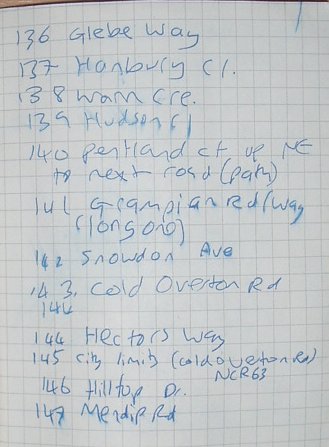 136 Glebe Way
137 Hanbury Cl.
138 Warn Cre.
139 Hudson Cl
140 Pentland ct up NE
to next road (path)
141 Grampian Rd/Way
(long one)
142 Snowdon Ave
143. Cold Overton Rd
144
144 Hectors Way
145 city limits (cold overton Rd)
NCR63
146 Hilltop Dr.
147 Mendip Rd